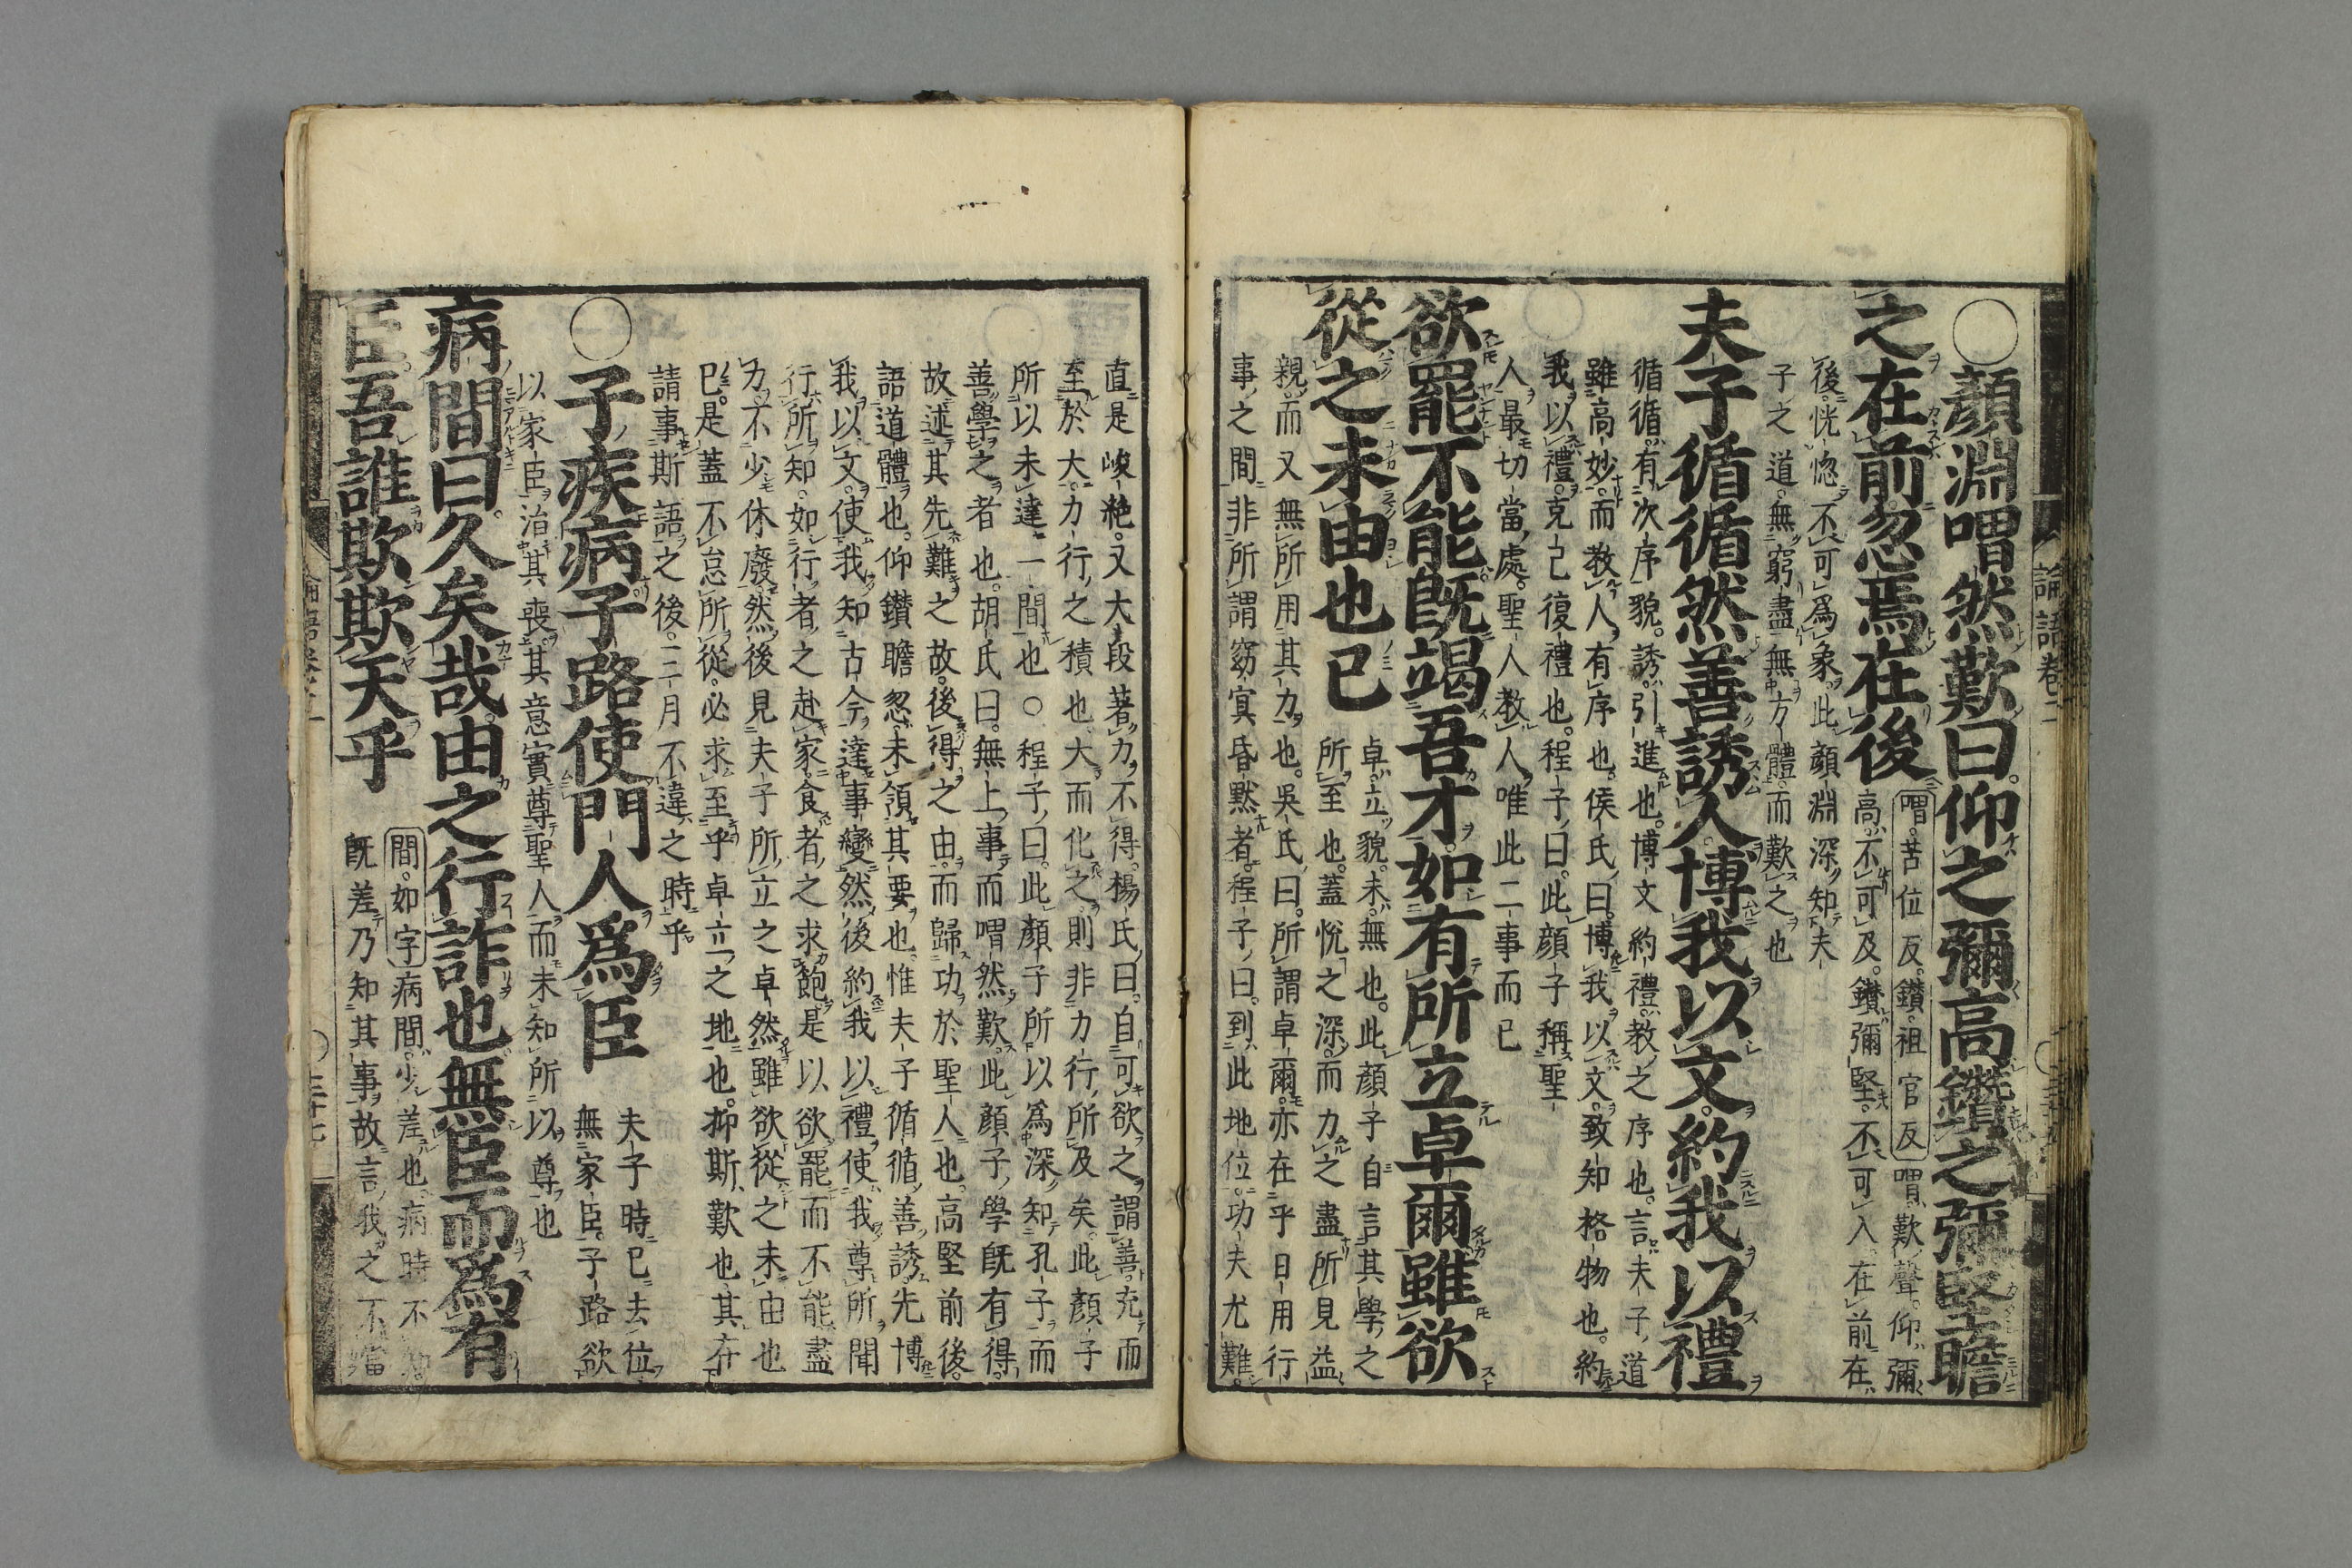 ○顔淵喟然歎曰。仰之彌高鑽之彌堅瞻
之在前忽焉在後
喟。苦位反。鑽。祖官反喟歎聲。仰彌
高不可及。鑽彌堅。不可入。在前在
後。恍惚不可爲象。此顔淵深知夫
子之道。無窮盡無方體而歎之也
夫子循循然善誘人。博我以文約我以禮
循循。有次序貌。誘。引進也。博文約禮。教之序也。言夫子道
雖高妙。而教人有序也。侯氏曰。博我以文。致知格物也。約
我以禮。克己復禮也。程子曰。此顔子稱聖
人最切當處。聖人教人唯此二事而已
欲罷不能既竭吾才。如有所立卓爾雖欲
從之末由也已
卓。立貌。末。無也。此顔子自言其學之
所至也。蓋悅之深。而力之盡所見益
親。而又無所用其力也。吳氏曰。所謂卓爾。亦在乎日用行
事之間非所謂窈冥昏默者。程子曰。到此地位。功夫尤難。
論語卷三
直是峻絶。又大段著力不得。楊氏曰。自可欲之謂善。充而
至於大。力行之積也大而化之則非力行所及矣。此顔子
所以未達一間也○程子曰。此顔子所以爲深知孔子而
善學之者也。胡氏曰。無上事而喟然歎。此顔子學既有得。
故述其先難之故。後得之由。而歸功於聖人也。高堅前後。
語道體也。仰鑽瞻忽。未領其要也。惟夫子循循善誘。先博
我以文。使我知古今達事變然後約我以禮。使我尊所聞
行所知。如行者之赴家。食者之求飽。是以欲罷而不能。盡
力不少休廢。然後見夫子所立之卓然雖欲從之末由也
已。是蓋不怠所從。必求至乎卓立之地也。抑斯歎也其在
請事斯語之後。三月不違之時乎
○子疾病子路使門人爲臣
夫子時已去位
無家臣。子路欲
以家臣治其喪。其意實尊聖人而未知所以尊也
病間曰。久矣哉。由之行詐也無臣而爲有
臣吾誰欺欺天乎
間。如字病間。少差也。病時不知
既差乃知其事。故言我之不當